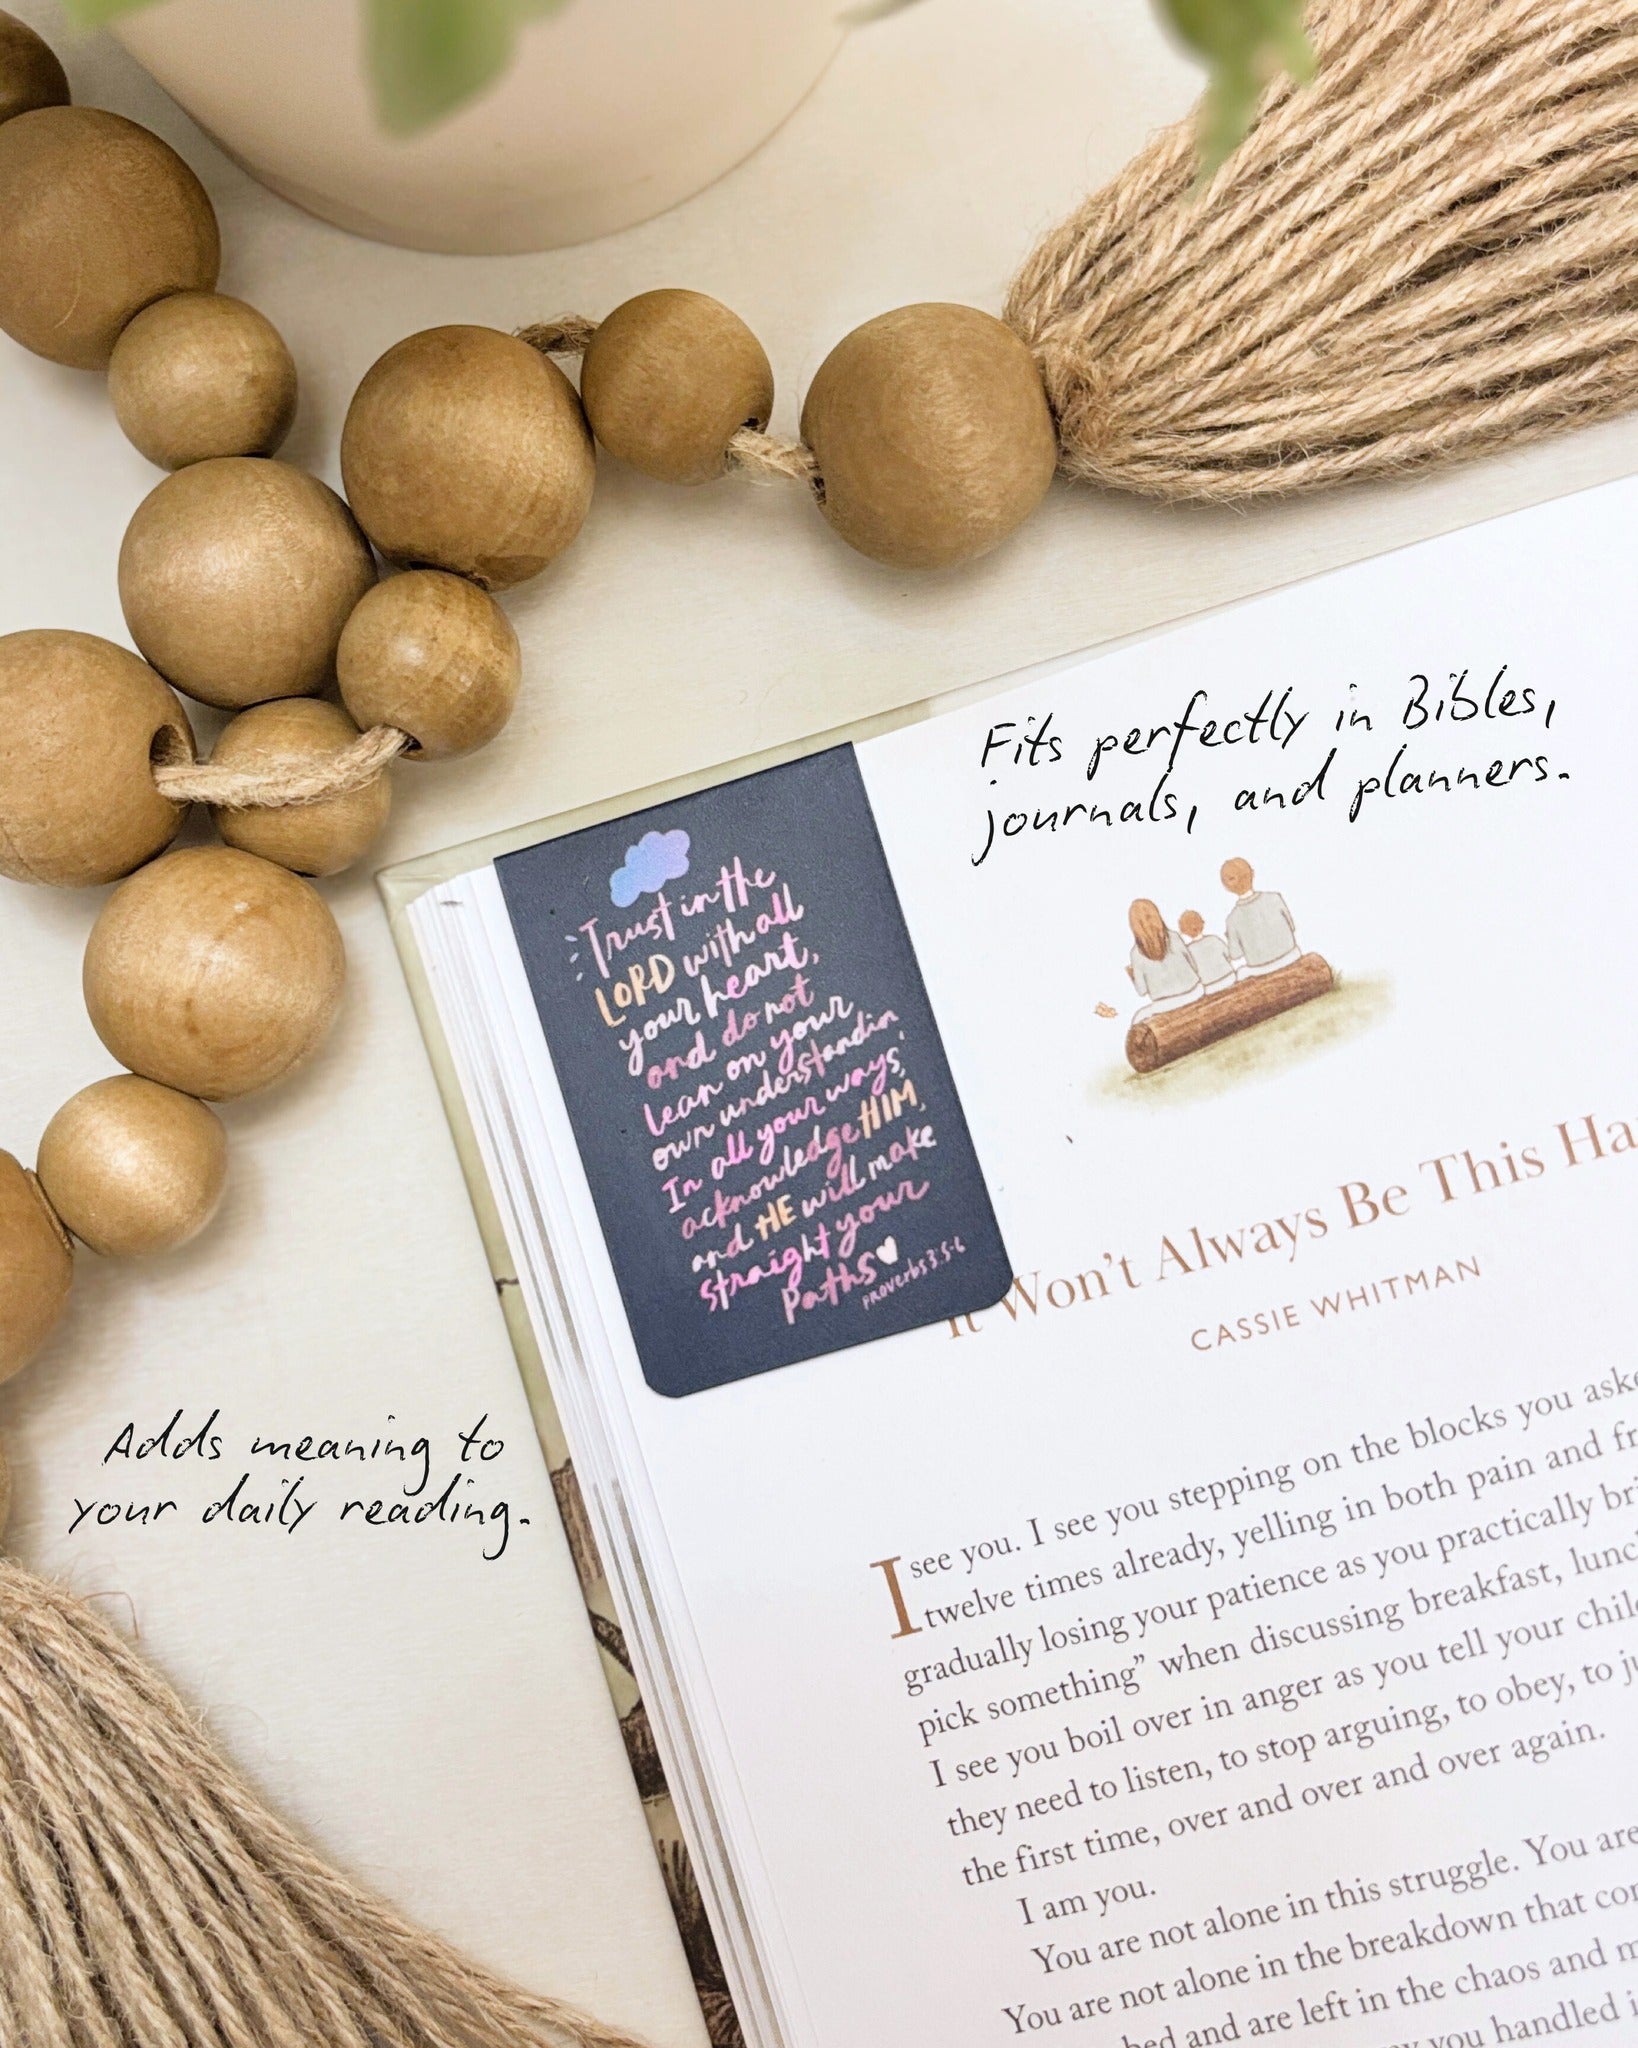 Fits perfectly in Bibles,
journals, and planners.
Trust in the
LORD with all
your heart,
and do not
lean on your
own understandin
In all your ways,
acknowledge HIM,
and HE will make
straight your
paths
PROVERBS 3:5-6
It Won't Always Be This Ha
CASSIE WHITMAN
Adds meaning to
your daily reading.
I see you. I see you stepping on the blocks you aske
twelve times already, yelling in both pain and fr
gradually losing your patience as you practically bri
pick something” when discussing breakfast, lunc
I see you boil over in anger as you tell your chil
they need to listen, to stop arguing, to obey, to ju
the first time, over and over and over again.
I am you.
You are not alone in this struggle. You are
You are not alone in the breakdown that co
and are left in the chaos and m
you handled i